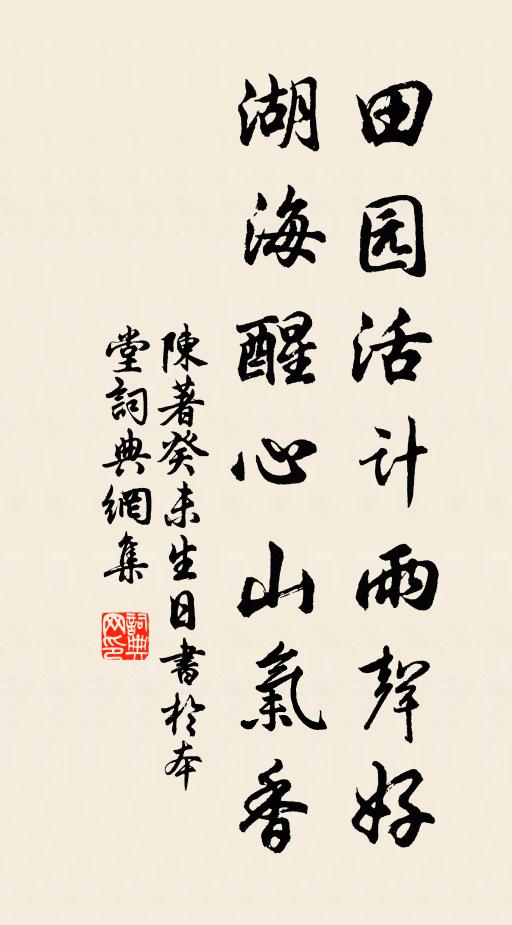 田园活计雨聲好
湖海醒心山氣香
陳著癸未生日書於本
堂詞典網集
詞典
网印